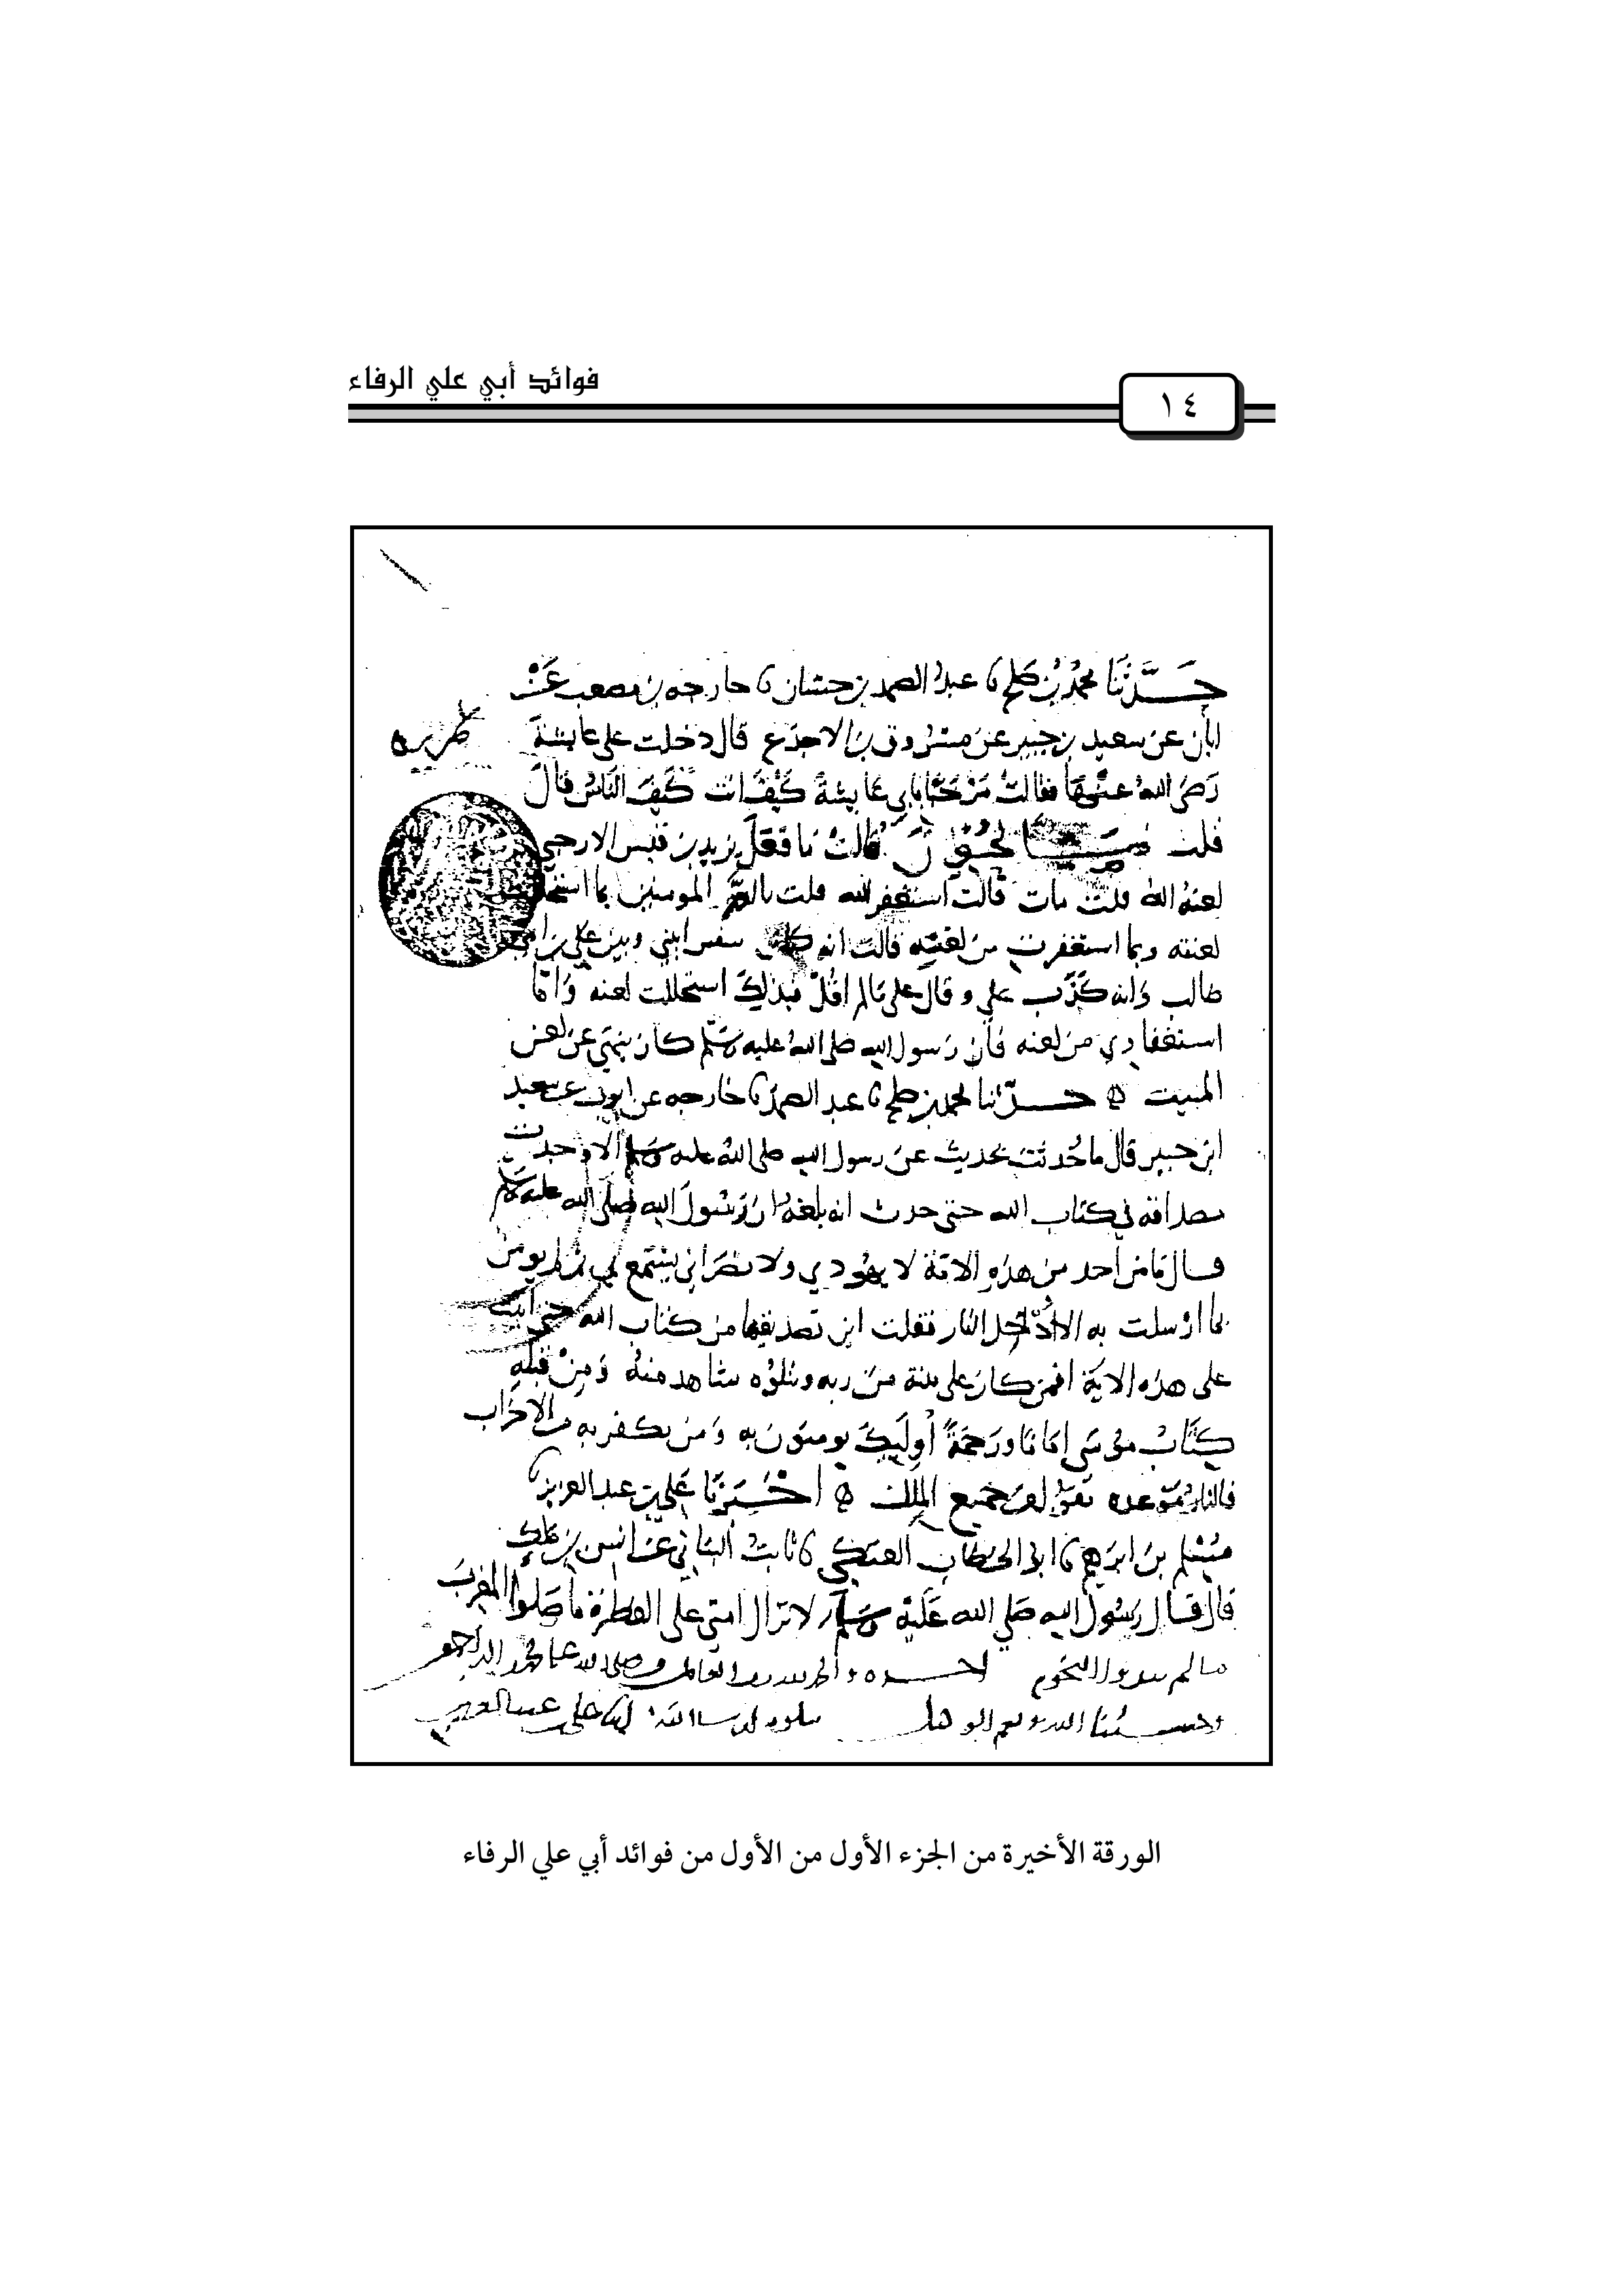 فوائد أبي علي الرفاء
١٤
حدثنا محمد بن صلح نا عبد الصمد بن حسان نا خارجه بن مصعب عن
ابان عن سعيد بن جبير عن مسروق بن الاجدع قال دخلت على عايشة
رضي الله عنها فقالت مرحبا يابي عايشة كيف انت كيف الناس قال
قلت قالت ما فعل يزيد بن قيس الارحبي
لعنه الله قلت مات قالت استغفر الله قلت يا ام المومنين بما استحللت
لعنته وبما استغفرت من لعنته قالت انه كان سفير ابيني وبين علي بن ابي
طالب وانه كذب علي و قال علي مالم اقل فبذلك استحللت لعنه واما
استغفاري من لعنه فان رسول الله صلى الله عليه وسلم كان ينهى عن لعن
الميت حدثنا محمد بن صلح نا عبد الصمد نا خارجه عن ايوب عن سعيد
ابن جبير قال ما حدثت بحديث عن رسول الله صلى الله عليه وسلم الا وجدت
مصداقه في كتاب الله حتى حدث انه بلغه ان رسول الله صلى الله عليه وسلم
قال ما من احد من هذه الامة لا يهودي ولا نصراني يستمع لي ثم لم يومن
بما ارسلت به الا ادخل النار فقلت اين تصديقها من كتاب الله حتى اتيت
على هذه الاية افمن كان على بينة من ربه ويتلوه شاهد منه ومن قبله
كتاب موسى اماما ورحمة أوليك يومنون به ومن يكفر به من الاحزاب
فالنار موعده نعم لهي جميع الملل اخبرنا علي بن عبد العزيز نا
مسلم بن ابرهيم نا ابو الخطاب العتكي نا ثابت البناني عن انس بن ملك
قال قال رسول الله صلي الله عليه وسلم لا تزال امتي على الفطرة ما صلوا المغرب
مالم النجوم اخره والحمد لله رب العالمين وصلى الله على محمد
وحسبنا الله ونعم الوكيل يتلوه ان شا الله علي بن عبد العزيز
الورقة الأخيرة من الجزء الأول من الأول من فوائد أبي علي الرفاء